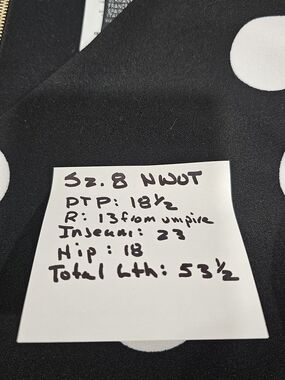 FRANCE
Sz. 8 NWOT
PTP: 18½
R: 13 from umpire
Inseam: 23
Hip: 18
Total Lth: 53½